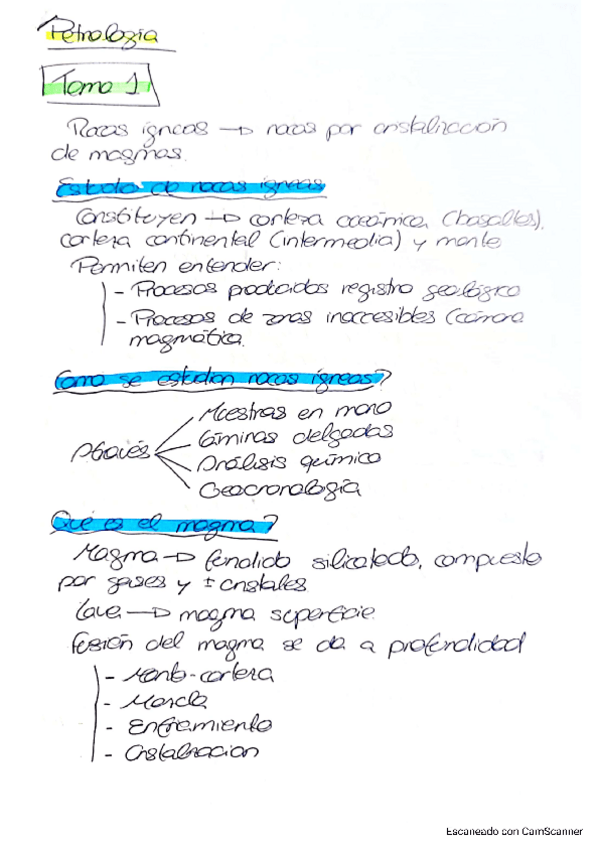 Petrología
Tema 1
Rocas ígneas → rocas por cristalización
de magmas.
Estudio de rocas ígneas
Constituyen → corteza oceánica (basaltos),
corteza continental (intermedia) y manto
Permiten entender:
- Procesos producidos registro geológico
- Procesos de zonas inaccesibles (cámara
magmática.
Como se estudian rocas ígneas?
Através
Muestras en mano
Láminas delgadas
Análisis químico
Geocronología
Qué es el magma?
Magma → fundido silicatado, compuesto
por gases y ± cristales
Lava → magma superficie.
Fusión del magma se da a profundidad
- Manto-corteza
- Mezcla
- Enfriamiento
- Cristalizacion
Escaneado con CamScanner